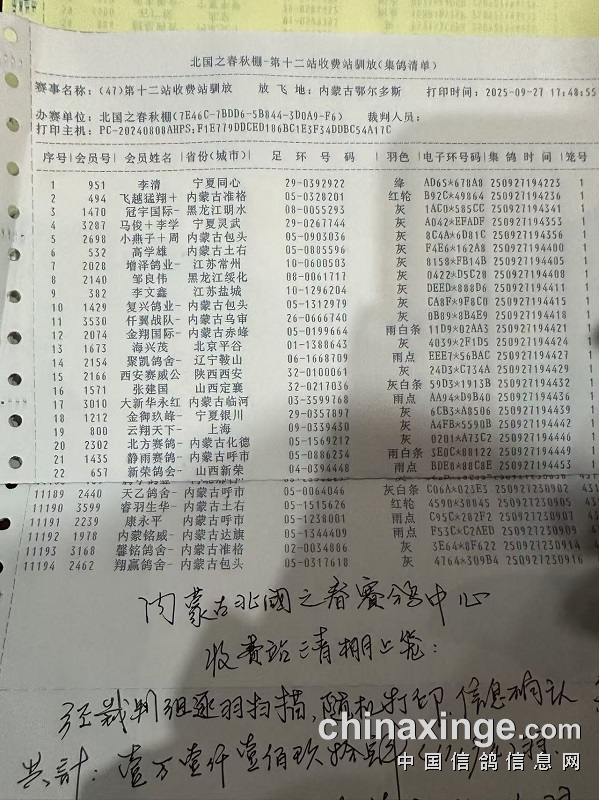 北国之春秋棚-第十二站收费站驯放(集鸽清单)
赛事名称: (47)第十二站收费站驯放 放飞地: 内蒙古鄂尔多斯 打印时间: 2025-09-27 17:48:55
办赛单位: 北国之春秋棚(7E46C-7BDD6-5B844-3D0A9-F6) 裁判人员:
打印主机: PC-20240808AHPS;F1E779DDCED186BC1E3F34DDBC54A17C
序号 会员号 会员姓名 省份(城市) 足环号码 羽色 电子环号码 集鸽时间 笼号
1 951 李清 宁夏同心 29-0392922 绛 AD65*678A8 250927194223 1
2 494 飞越猛翔+ 内蒙古准格 05-0328201 红轮 B92C*49864 250927194236 1
3 1470 冠宇国际- 黑龙江明水 08-0055293 灰 1AC0*585CC 250927194341 1
4 3287 马俊+李学 宁夏灵武 29-0267744 灰 A042*EFADF 250927194353 1
5 2698 小燕子+周 内蒙古包头 05-0903036 灰 8C4A*6D81C 250927194356 1
6 532 高学雄 内蒙古土右 05-0885596 灰 F4E6*162A8 250927194400 1
7 2028 增泽鸽业- 江苏常州 10-0600503 灰 8158*FB14B 250927194409 1
8 2140 邹良伟 黑龙江绥化 08-0061717 灰 0422*D5C28 250927194408 1
9 382 李文鑫 江苏盐城 10-1296204 灰 DEED*888D6 250927194411 1
10 1429 复兴鸽业- 内蒙古包头 05-1312979 灰 CA8F*9F8C0 250927194415 1
11 3530 仟翼战队- 内蒙古乌审 26-0666740 灰 0B89*8B4E9 250927194418 1
12 2074 金翔国际- 内蒙古赤峰 05-0199664 雨白条 11D9*02AA3 250927194421 1
13 1673 海兴茂 北京平谷 01-1388643 灰 4039*2F1D5 250927194424 1
14 2154 聚凯鸽舍- 辽宁鞍山 06-1668709 雨点 EEE7*56BAC 250927194427 1
15 2166 西安赛威公 陕西西安 32-0100061 灰 24D3*C734A 250927194429 1
16 1571 张建国 山西定襄 32-0217036 灰白条 59D3*1913B 250927194432 1
17 3010 大新华永红 内蒙古临河 03-3599768 雨点 AA94*D9B40 250927194436 1
18 1212 金御玖峰- 宁夏银川 29-0357897 灰 6CB3*A8506 250927194439 1
19 800 云翔天下- 上海 09-0353430 灰 A4FB*5590B 250927194442 1
20 2302 北方赛鸽- 内蒙古化德 05-1569212 灰 0201*A73C2 250927194446 1
21 1435 静雨赛鸽- 内蒙古呼市 05-0886234 雨白条 3E0C*88122 250927194449 1
22 657 新荣鸽会- 山西新荣 04-0394448 雨点 BDE8*88C8E 250927194453 1
11189 2440 天乙鸽舍- 内蒙古呼市 05-0064046 灰白条 C06A*023E3 250927230902 431
11190 3599 睿羽生华- 内蒙古土右 05-1515626 红轮 4590*38845 250927230905 431
11191 2239 康永平 内蒙古呼市 05-1238001 雨点 C95C*202F2 250927230907
11192 1978 内蒙铭威- 内蒙古达旗 05-1344409 雨点 F53C*C2AED 250927230909
11193 3168 馨铭鸽舍- 内蒙古准格 02-0034886 灰 3E64*0F622 250927230914
11194 2462 翔赢鸽舍- 内蒙古包头 05-0317618 灰 4764*309B4 250927230916
内蒙古北國之春賽鸽中心
收费站清棚上笼:
经裁判组逐羽扫描,随机打印,信息确认
共計: 壹万壹仟壹佰玖拾
chinaxinge.com
中国信鸽信息网